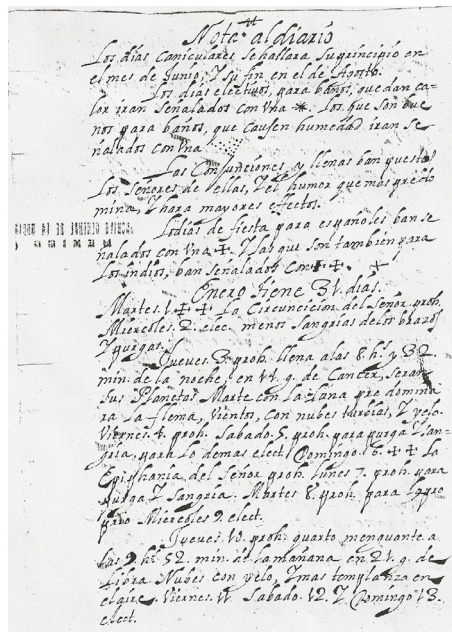 Nota al diario
Los dias Caniculares se hallara su principio en
el mes de Junio, Y su fin en el de Agosto.
Los dias electivos, para baños, que dan ca-
lor iran Señalados con vna *. Los que son bue
nos para baños, que causen humedad iran se
ñalados con vna
Las Conjunciones, y llenas ban puestos
Los Señores de ellas, Y el humor que mas predo
mina, Y hara mayores effectos.
Los dias de fiesta para españoles ban se
ñalados con vna ✠ Y las que son tambien para
Los indios, ban Señalados con ✠ ✠.
Enero tiene 31. dias.
Martes. 1. ✠ ✠ La Circuncicion del Señor. proh.
Miercoles. 2. elec. menos Sangrias de los brazos
Y purgas.
Jueves. 3. proh. llena a las 8. hs. y 32
min. de la noche, en 14. g. de Cancer, Seran
sus Planetas Marte con la Luna predomina
ra la flema, vientos, con nubes turbias, Y yelo.
Viernes. 4. proh. Sabado. 5. proh. para purga Y san-
gria, para lo demas elect. Domingo. 6. ✠ ✠ La
Epiphania del Señor proh. Lunes 7. proh. para
purga Y Sangria. Martes 8. proh. para lo pro
prio Miercoles 9. elect.
Jueves. 10. proh. quarto menguante a
las 9. hs. 52. min. de la mañana en 21. g. de
Libra Nubes con yelo, Y mas templanza en
el aire. Viernes. 11. Sabado. 12. Y Domingo 13.
elect.